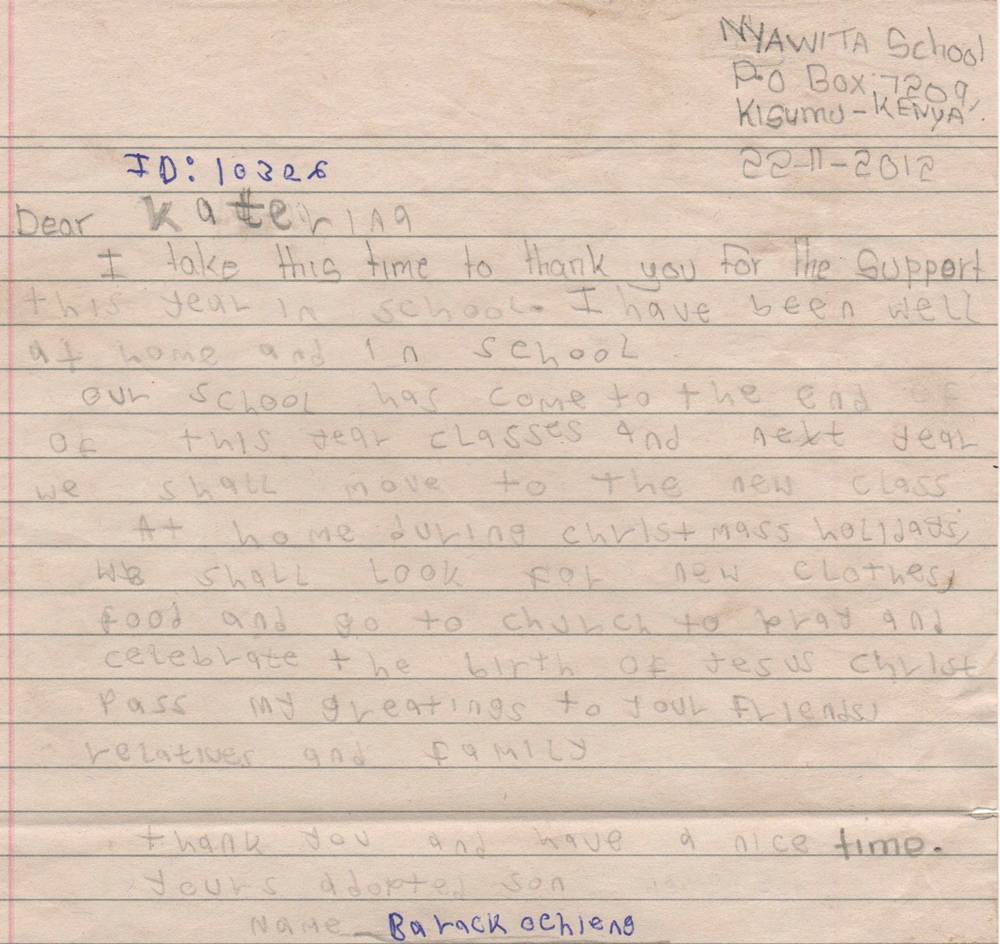 NYAWITA School
P.O Box 7209,
KISUMU-KENYA.
22-11-2012
ID: 10326
Dear Katerina
I take this time to thank you for the Support
this year in school. I have been well
at home and in school
our school has come to the end of
of this year classes and next year
we shall move to the new class
At home during christmass holidays,
we shall look for new clothes,
food and go to church to pray and
celebrate the birth of Jesus christ
Pass my greatings to your friends,
relatives and family
thank you and have a nice time.
yours adopted son
Name Barack ochieng